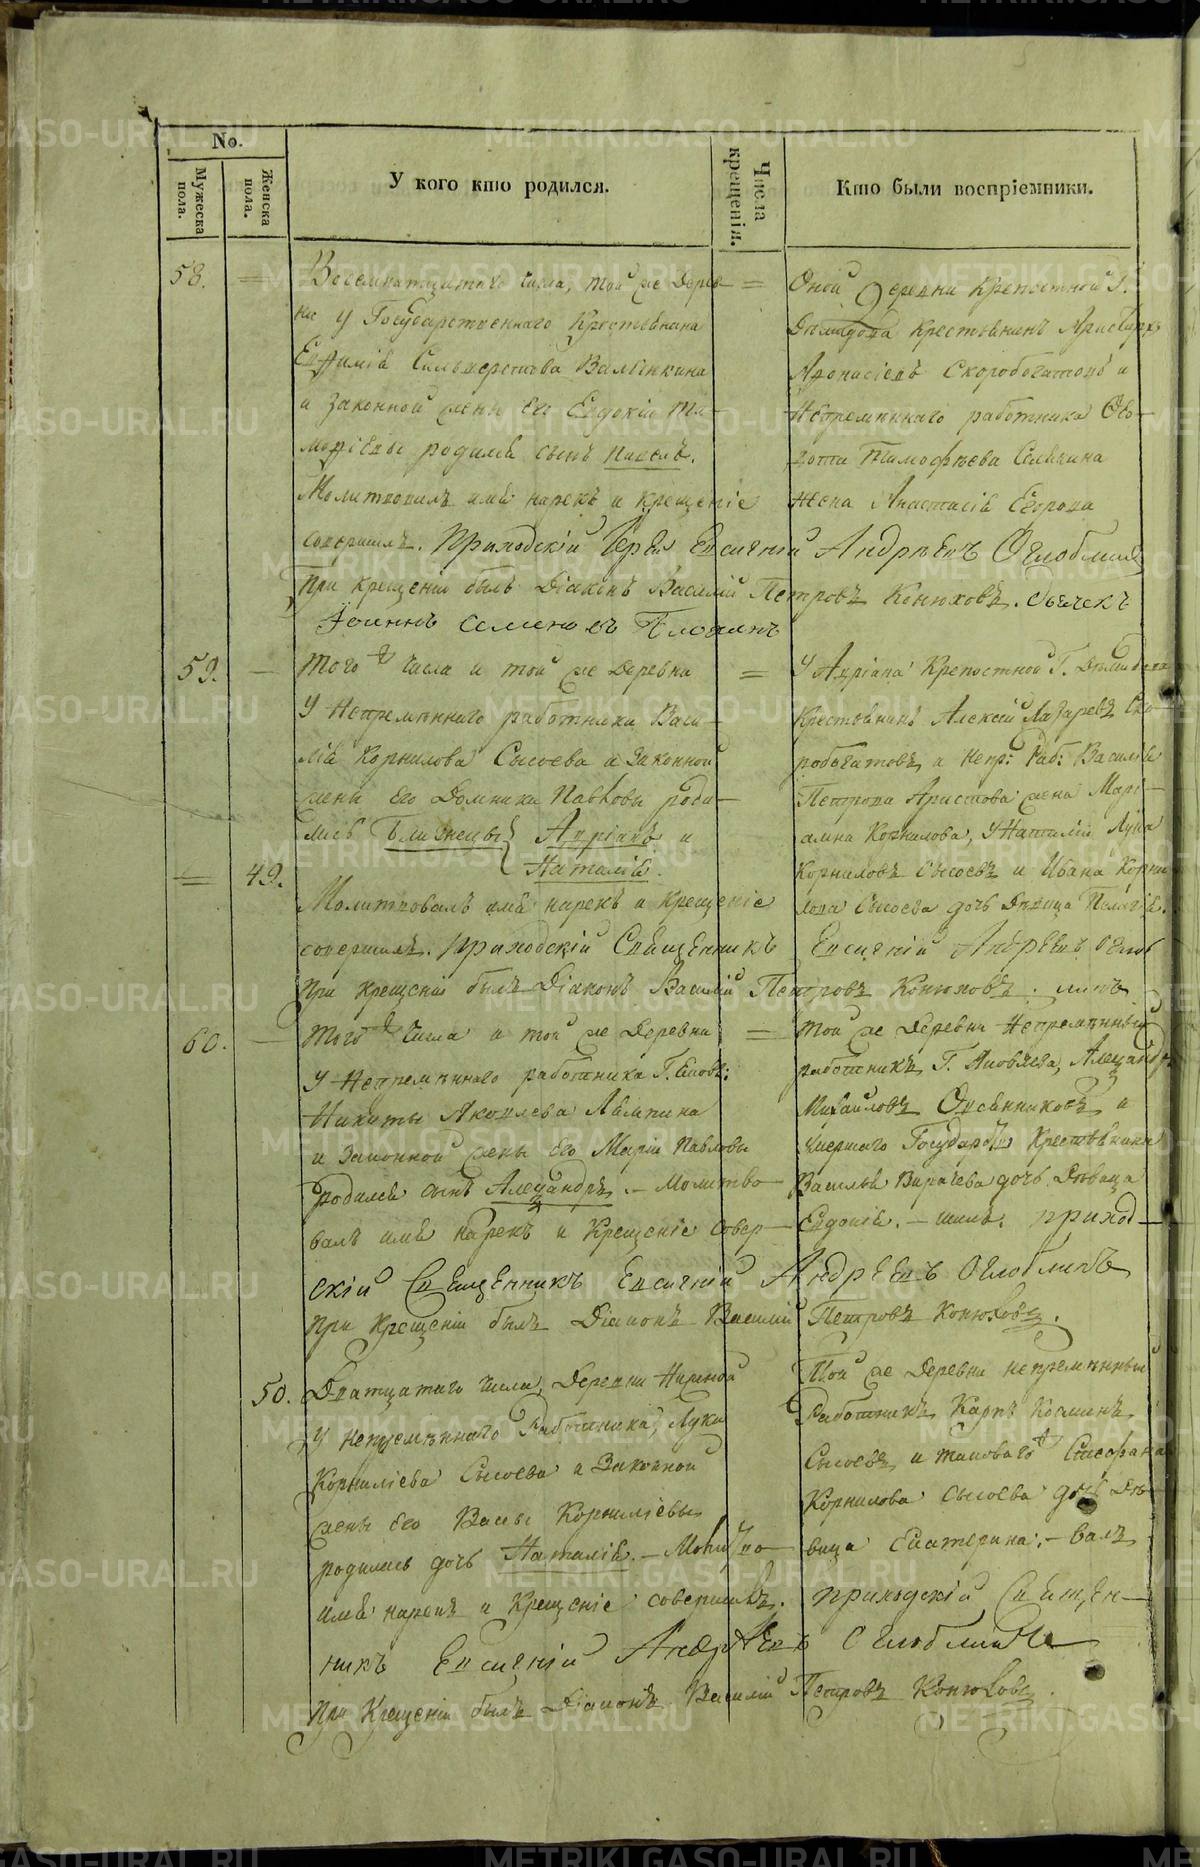 No.
Мужеска пола.
Женска пола.
У кого кто родился.
Числа крещенія.
Кто были воспріемники.
58.
Восемнатцатаго числа, той же Дерев-
ни у Государственнаго Крестьянина
Евфимія Сильверстова Вамянкина
и законной жены Его Евдокіи Ти-
мофіевы родился сынъ Павелъ.
Молитвовалъ имя нарекъ и крещеніе
совершилъ. Приходскій Іерей Евсигній Андрѣевъ Оглоблинъ
При крещеніи былъ Діаконъ Василій Петровъ Конюховъ. Дьячекъ
Іоаннъ Семеновъ
Оной Деревни крепостной Г.
Демидова крестьянинъ Аристархъ
Афонасіевъ Скоробогатовъ и
Непремѣннаго работника Ѳе-
дота Тимофѣева Селянина
жена Анастасія Егорова
59.
49.
Того числа и той же Деревни
У Непремѣннаго работника Васи-
лія Корнилова Сысоева и законной
жены Его Домники Павловы роди-
лись Близнецы Адріанъ и
Наталія.
Молитвовалъ имя нарекъ и крещеніе
совершилъ. Приходскій Священникъ Евсигній Андрѣевъ Оглоб
При крещеніи былъ Діаконъ Василій Петровъ Конюховъ. линъ
У Адріана Крепостной Г. Демидова
Крестьянинъ Алексій Лазаревъ Ско-
робогатовъ и Непр: Раб: Василія
Петрова Аристова жена Марі-
амна Корнилова, У Наталіи Лука
Корниловъ Сысоевъ и Ивана Корни
лова Сысоева дочь Дѣвица Пелагія.
60.
Того числа и той же Деревни
У Непремѣннаго работника Г. Яковл:
Никиты Яковлева Лямпина
и Законной жены Его Маріи Павловы
родился сынъ Александръ. - Молитво-
валъ имя нарекъ и Крещеніе совер-
Той же Деревни Непремѣнный
работникъ Г. Яковлева, Александръ
Михайловъ Овсянниковъ и
умершаго Государств: Крестьянина
Василья Вирачева дочь Дѣвица
Евдокія. - шилъ: приход-
скій Священникъ Евсигній Андрѣевъ Оглоблинъ
При Крещеніи былъ Діаконъ Василій Петровъ Конюховъ.
50.
Дватцатаго числа, Деревни Нижной
У непремѣннаго Работника, Луки
Корниліева Сысоева и Законной
жены Его Вассы Корниліевы
родилась дочь Наталія. - Молитво-
имя нарекъ и Крещеніе совершилъ. приходскій Священ-
никъ Евсигній Андрѣевъ Оглоблинъ
При Крещеніи былъ Діаконъ Василій Петровъ Конюховъ.
Той же Деревни непремѣнный
Работникъ Карпъ Косминъ
Сысоевъ и таковаго Стефана
Корнилова Сысоева дочь Дѣ-
вица Екатерина. - валъ
METRIKI.GASO-URAL.RU